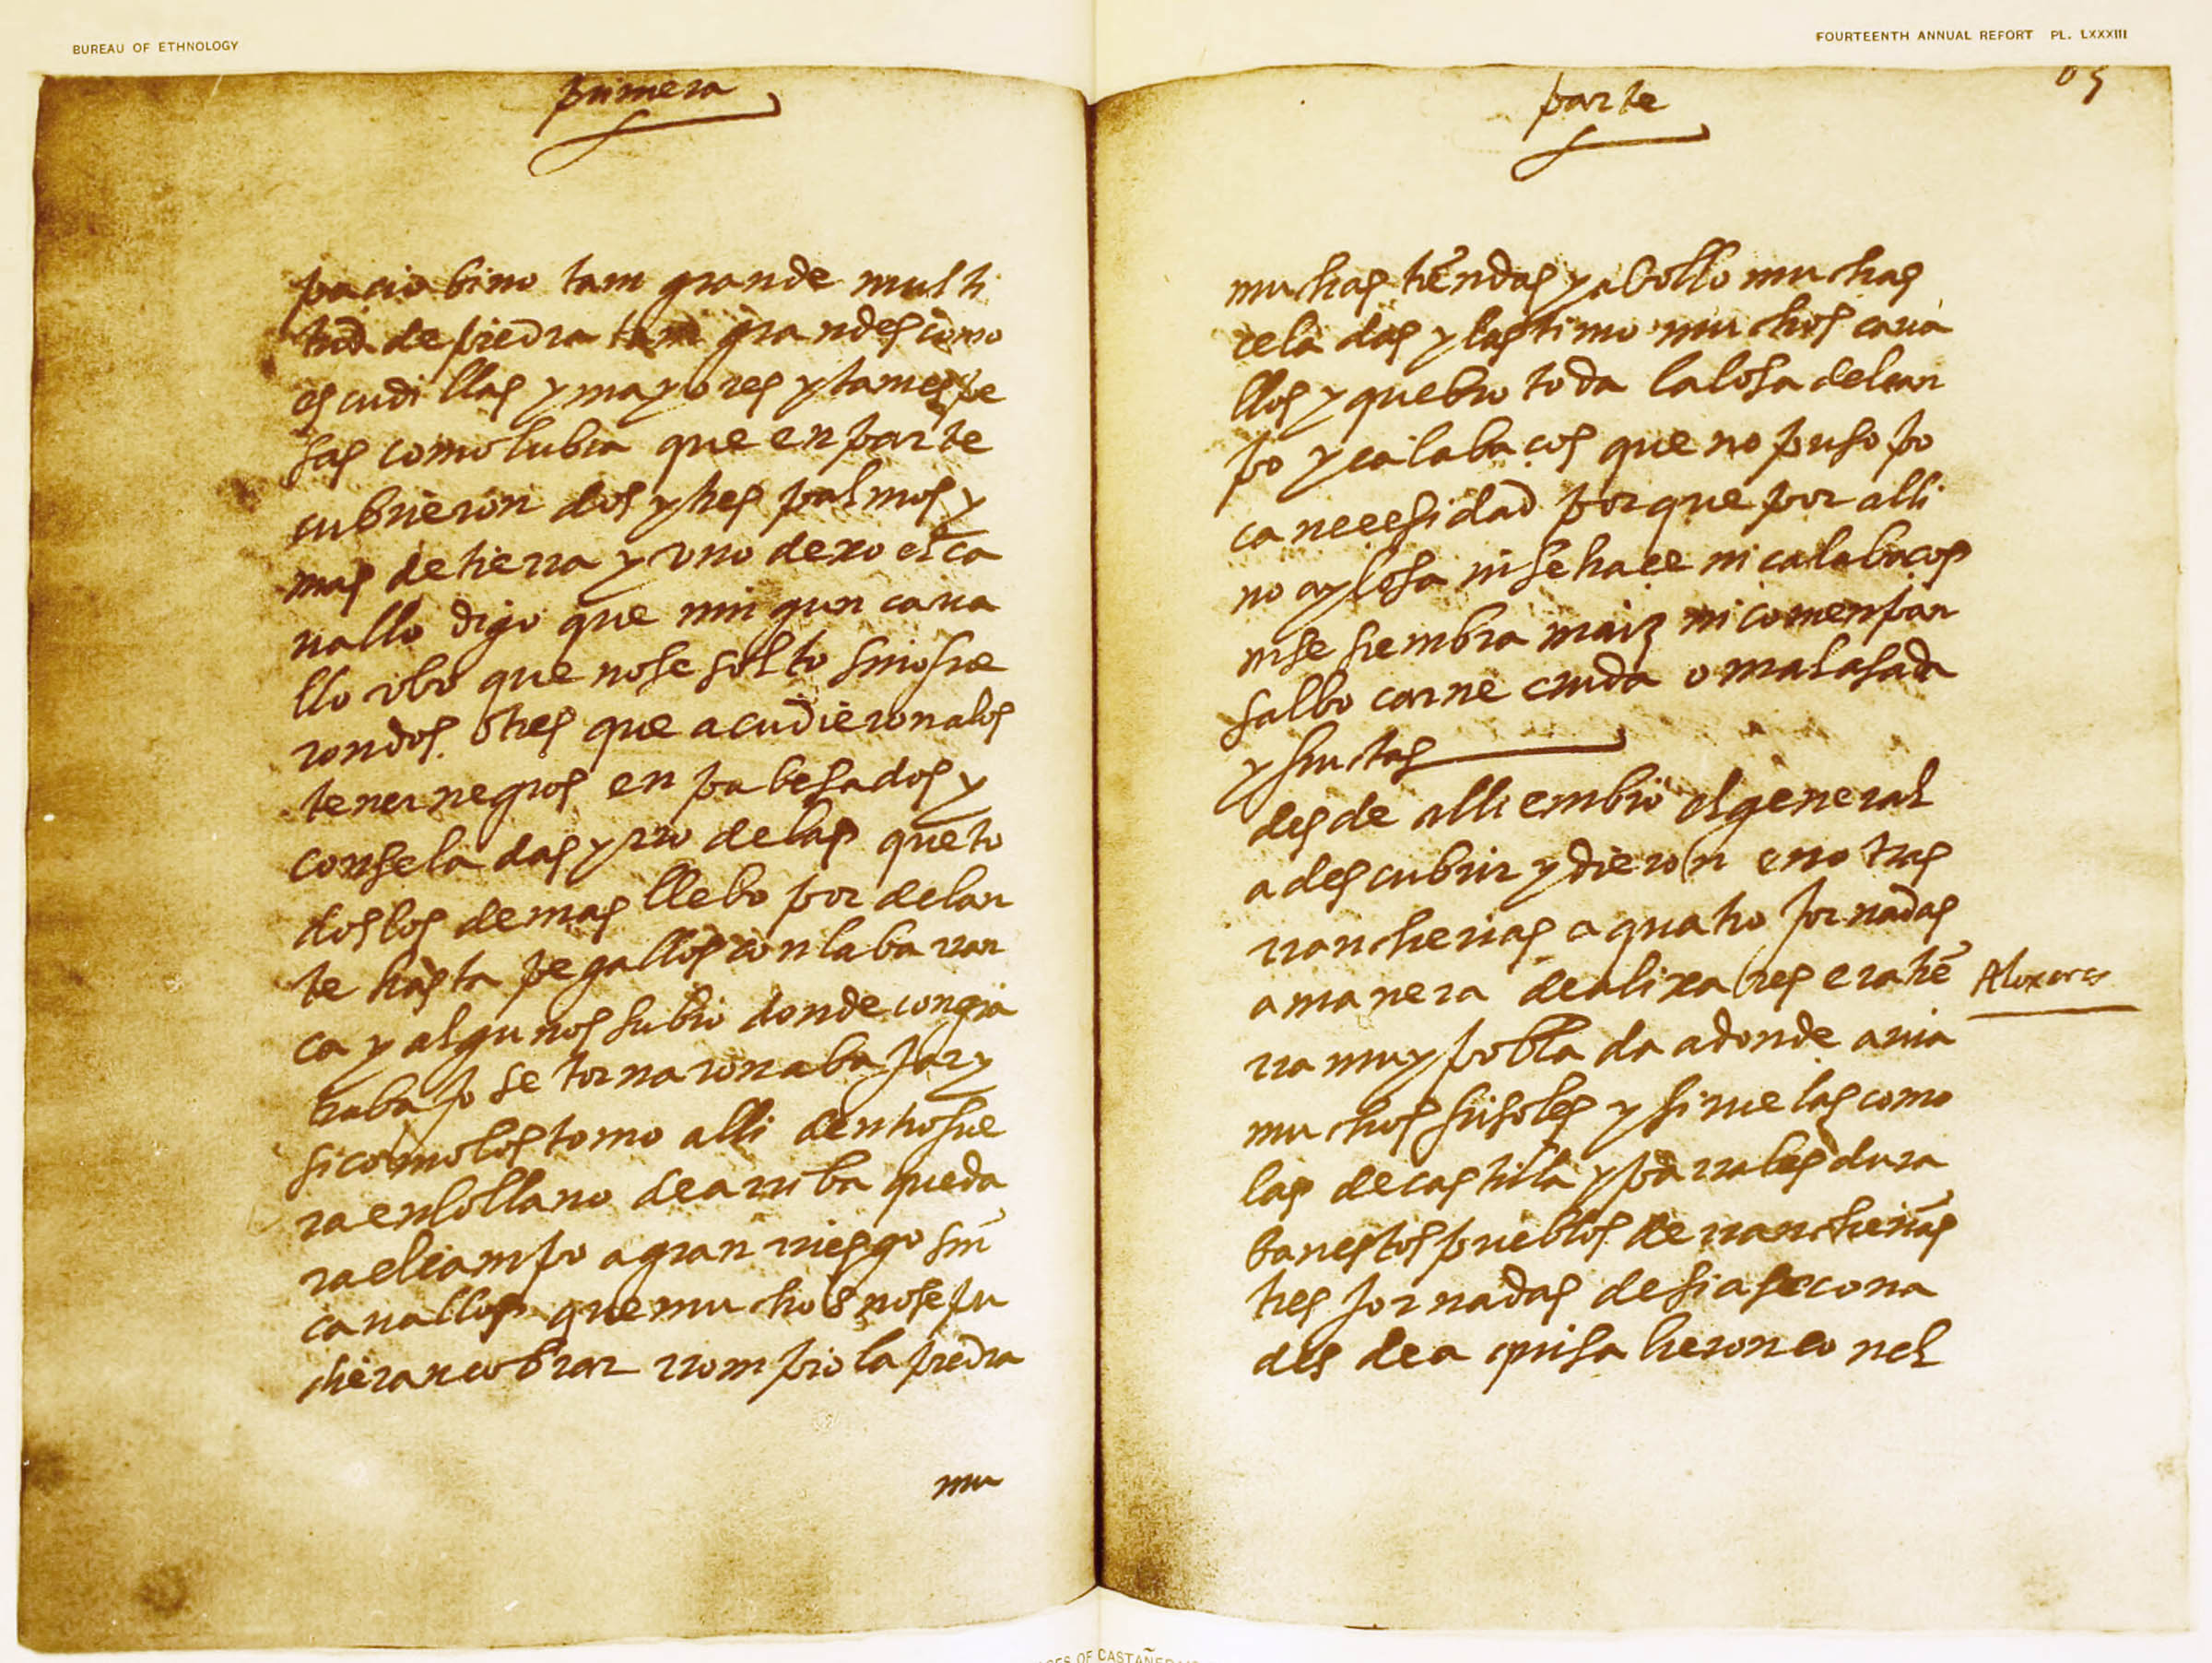 BUREAU OF ETHNOLOGY
primera
pacio bino tam grande multi
tud de piedra tam grandes como
escudillas y mayores y tam espe
sas como lubia que en parte
cubrieron dos y tres palmos y
mas de tierra y uno dexo el ca
uallo digo que ningun caua
llo ubo que no se solto sino fue
ron dos o tres que acudieron a los
tener negros enpabesados y
con seladas y rro delas que to
dos los demas llebo por delan
te hasta pegallos con la barran
ca y algunos subio donde con gra
trabajo se tornaron a bajar y
si como los tomo alli dentro fue
ra en lo llano de arriba queda
ra el campo a gran rriesgo sin
cauallos que muchos no se pu
dieran cobrar rrompio la piedra
mu
FOURTEENTH ANNUAL REPORT PL. LXXXIII
parte
muchas tiendas y abollo muchas
celadas y lastimo muchos caua
llos y quebro toda la losa del can
po y calabaços que no puso po
ca necesidad porque por alli
no ay losa ni se hace ni calabaços
ni se siembra maiz ni comen pan
salbo carne cruda o mal asada
y frutas
desde alli embio el general
a descubrir y dieron en otras
rrancherias a quatro jornadas
a manera de alixares era tie
rra muy poblada adonde auia
muchos frisoles y siruelas como
las de castilla y parrales dura
ban estos pueblos de rrancherias
tres jornadas desiase cona
des de aqui salieron con el
Alixares